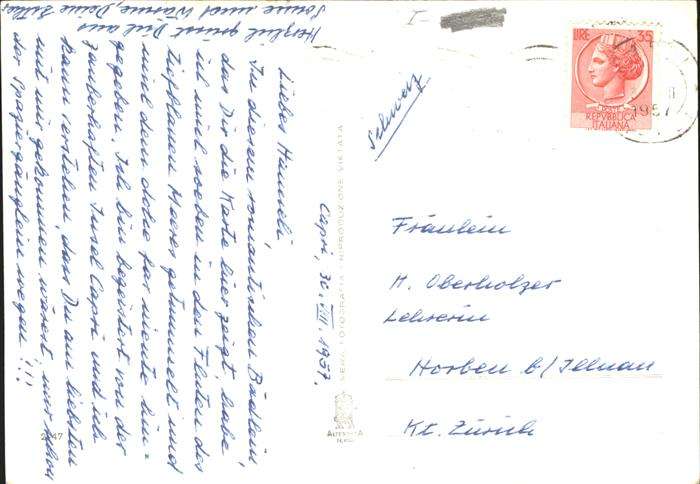 Capri, 30. VIII. 1957.
Liebes Hanneli,
In diesem romantischen Bädlein,
das Dir die Karte hier zeigt, habe
ich mich soeben in den Fluten des
tiefblauen Meeres getummelt und
mich dem dolce far niente hin-
gegeben. Ich bin begeistert von der
zauberhaften Insel Capri und ich
kann verstehen, dass Du am liebsten
mit mir gekommen wärest, nur schon
der Spaziergänglein wegen!!!
Herzlich grüsst Dich aus
Sonne und Wärme, Deine
I-
Schweiz
LIRE 35
POSTE
REPVBBLICA
ITALIANA
1957
Fräulein
H. Oberholzer
Lehrerin
Horben b/ Illnau
Kt. Zürich
VERA FOTOGRAFIA - RIPRODUZIONE VIETATA